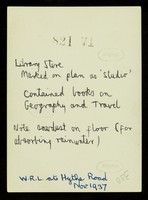 821 71
Library Store
Marked on plan as 'Studio'
Contained books on
Geography and Travel
Note sawdust on floor (for
absorbing rainwater)
W.R.L. at Hythe Road
Nov 1937